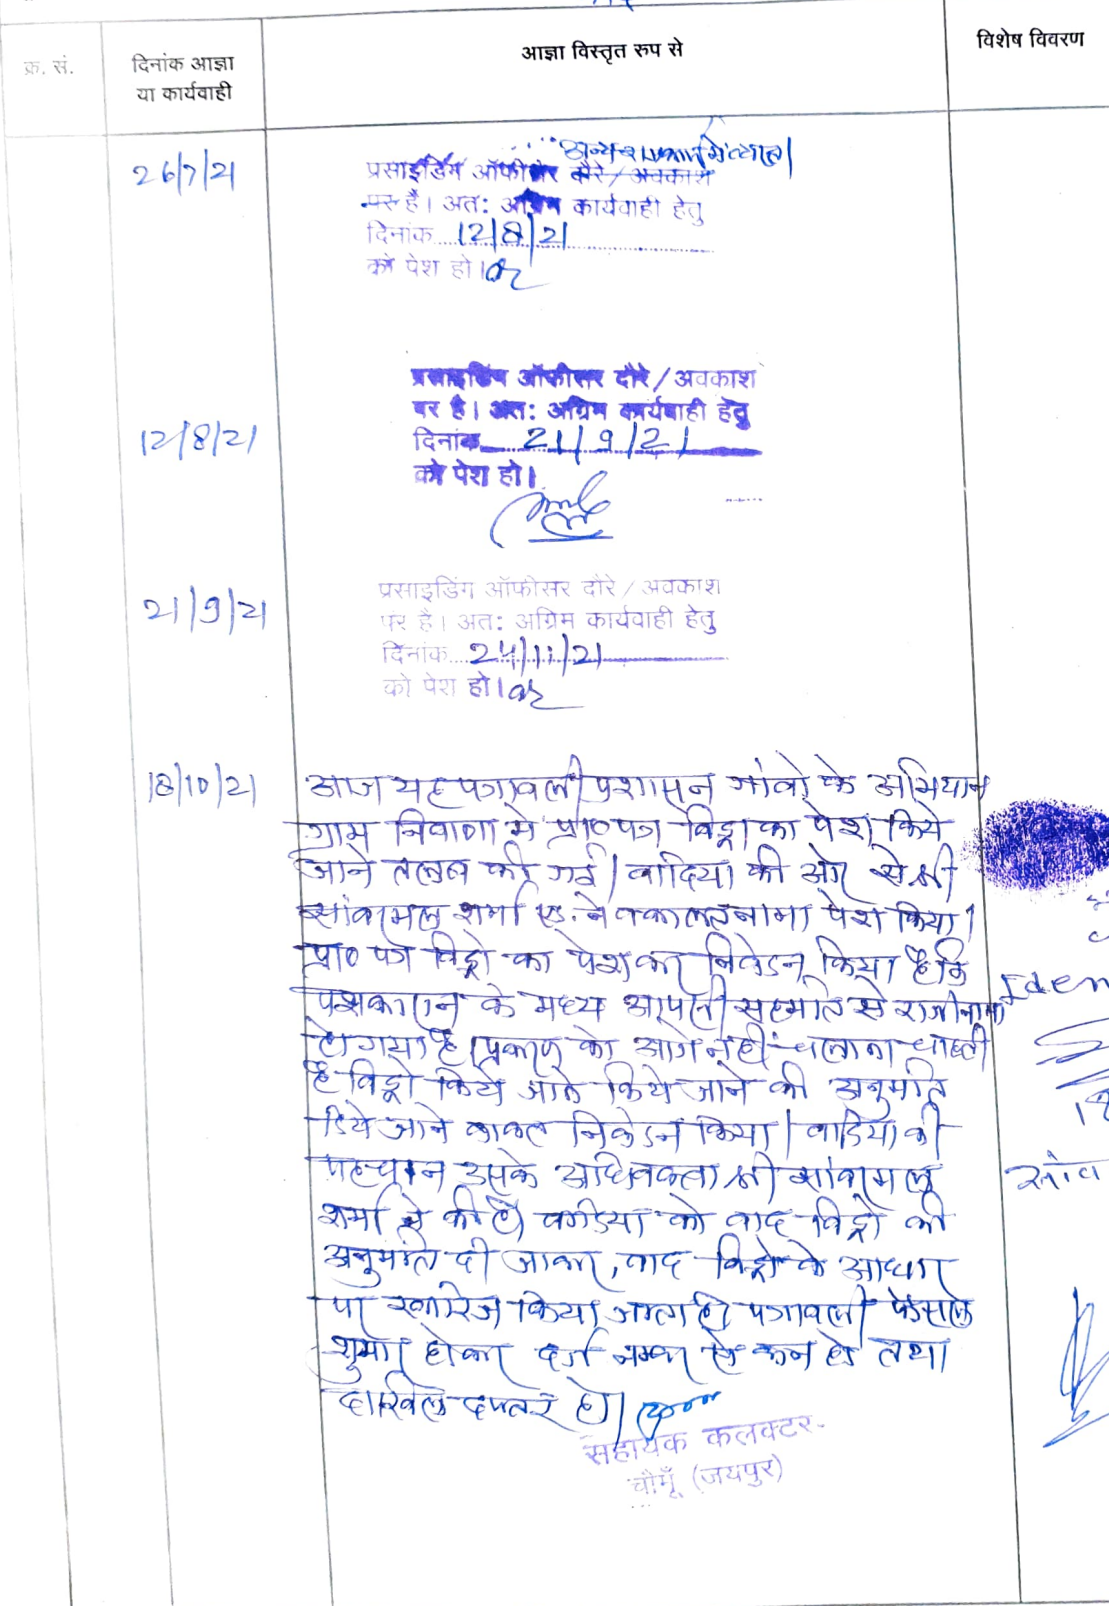 क्र. सं.
दिनांक आज्ञा
या कार्यवाही
आज्ञा विस्तृत रुप से
विशेष विवरण
26/7/21
अन्य
प्रसाइडिंग ऑफीसर दौरे / अवकाश
पर है। अत: अग्रिम कार्यवाही हेतु
दिनांक 12/8/21
को पेश हो।
12/8/21
प्रसाइडिंग ऑफीसर दौरे / अवकाश
पर है। अत: अग्रिम कार्यवाही हेतु
दिनांक 21/9/21
को पेश हो।
21/9/21
प्रसाइडिंग ऑफीसर दौरे / अवकाश
पर है। अत: अग्रिम कार्यवाही हेतु
दिनांक 24/11/21
को पेश हो।
18/10/21
आज यह पत्रावली प्रशासन गांवो के अभियान
ग्राम निवाणा मे प्रा० पत्र विड्रो का पेश किये
जाने तलब की गई। वादिया की ओर से श्री
सांवरमल शर्मा एड. ने वकालतनामा पेश किया।
प्रा० पत्र विड्रो का पेश कर निवेदन किया है कि
पक्षकारान के मध्य आपसी सहमति से राजीनामा
हो गया है। प्रकरण को आगे नहीं चलाना चाहती
है विड्रो किये जाने किये जाने की अनुमति
दिये जाने बाबत निवेदन किया। वादिया की
पहचान उसके अधिवक्ता श्री सांवरमल
शर्मा ने की है। वादिया को वाद विड्रो की
अनुमति दी जाकर, वाद विड्रो के आधार
पर खारिज किया जाता है। पत्रावली फैसल
शुमार होकर दर्ज नम्बर से कम हो तथा
दाखिल दफ्तर हो।
सहायक कलक्टर
चौमूँ (जयपुर)
Iden
सांव